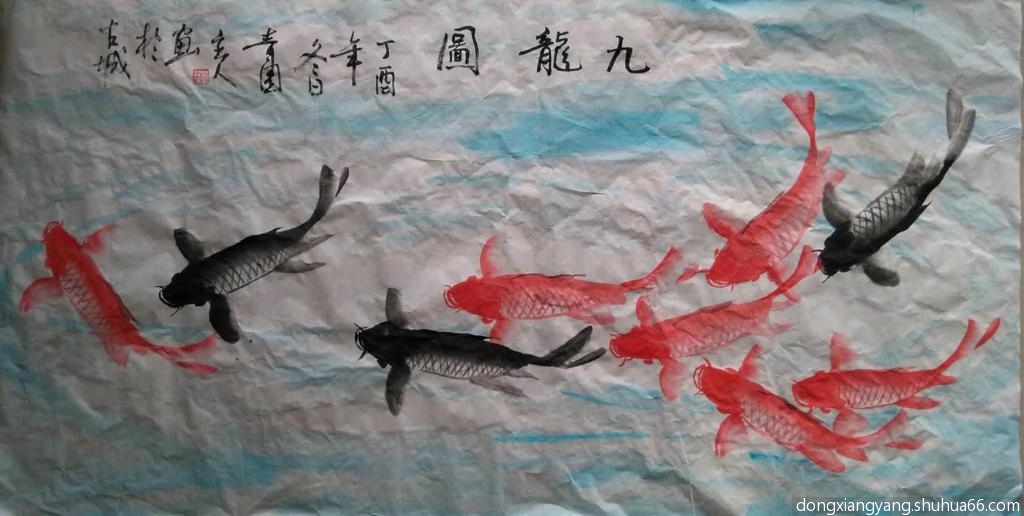 九龍圖
丁酉
年
冬月
於
古城
dongxiangyang.shuhua66.com